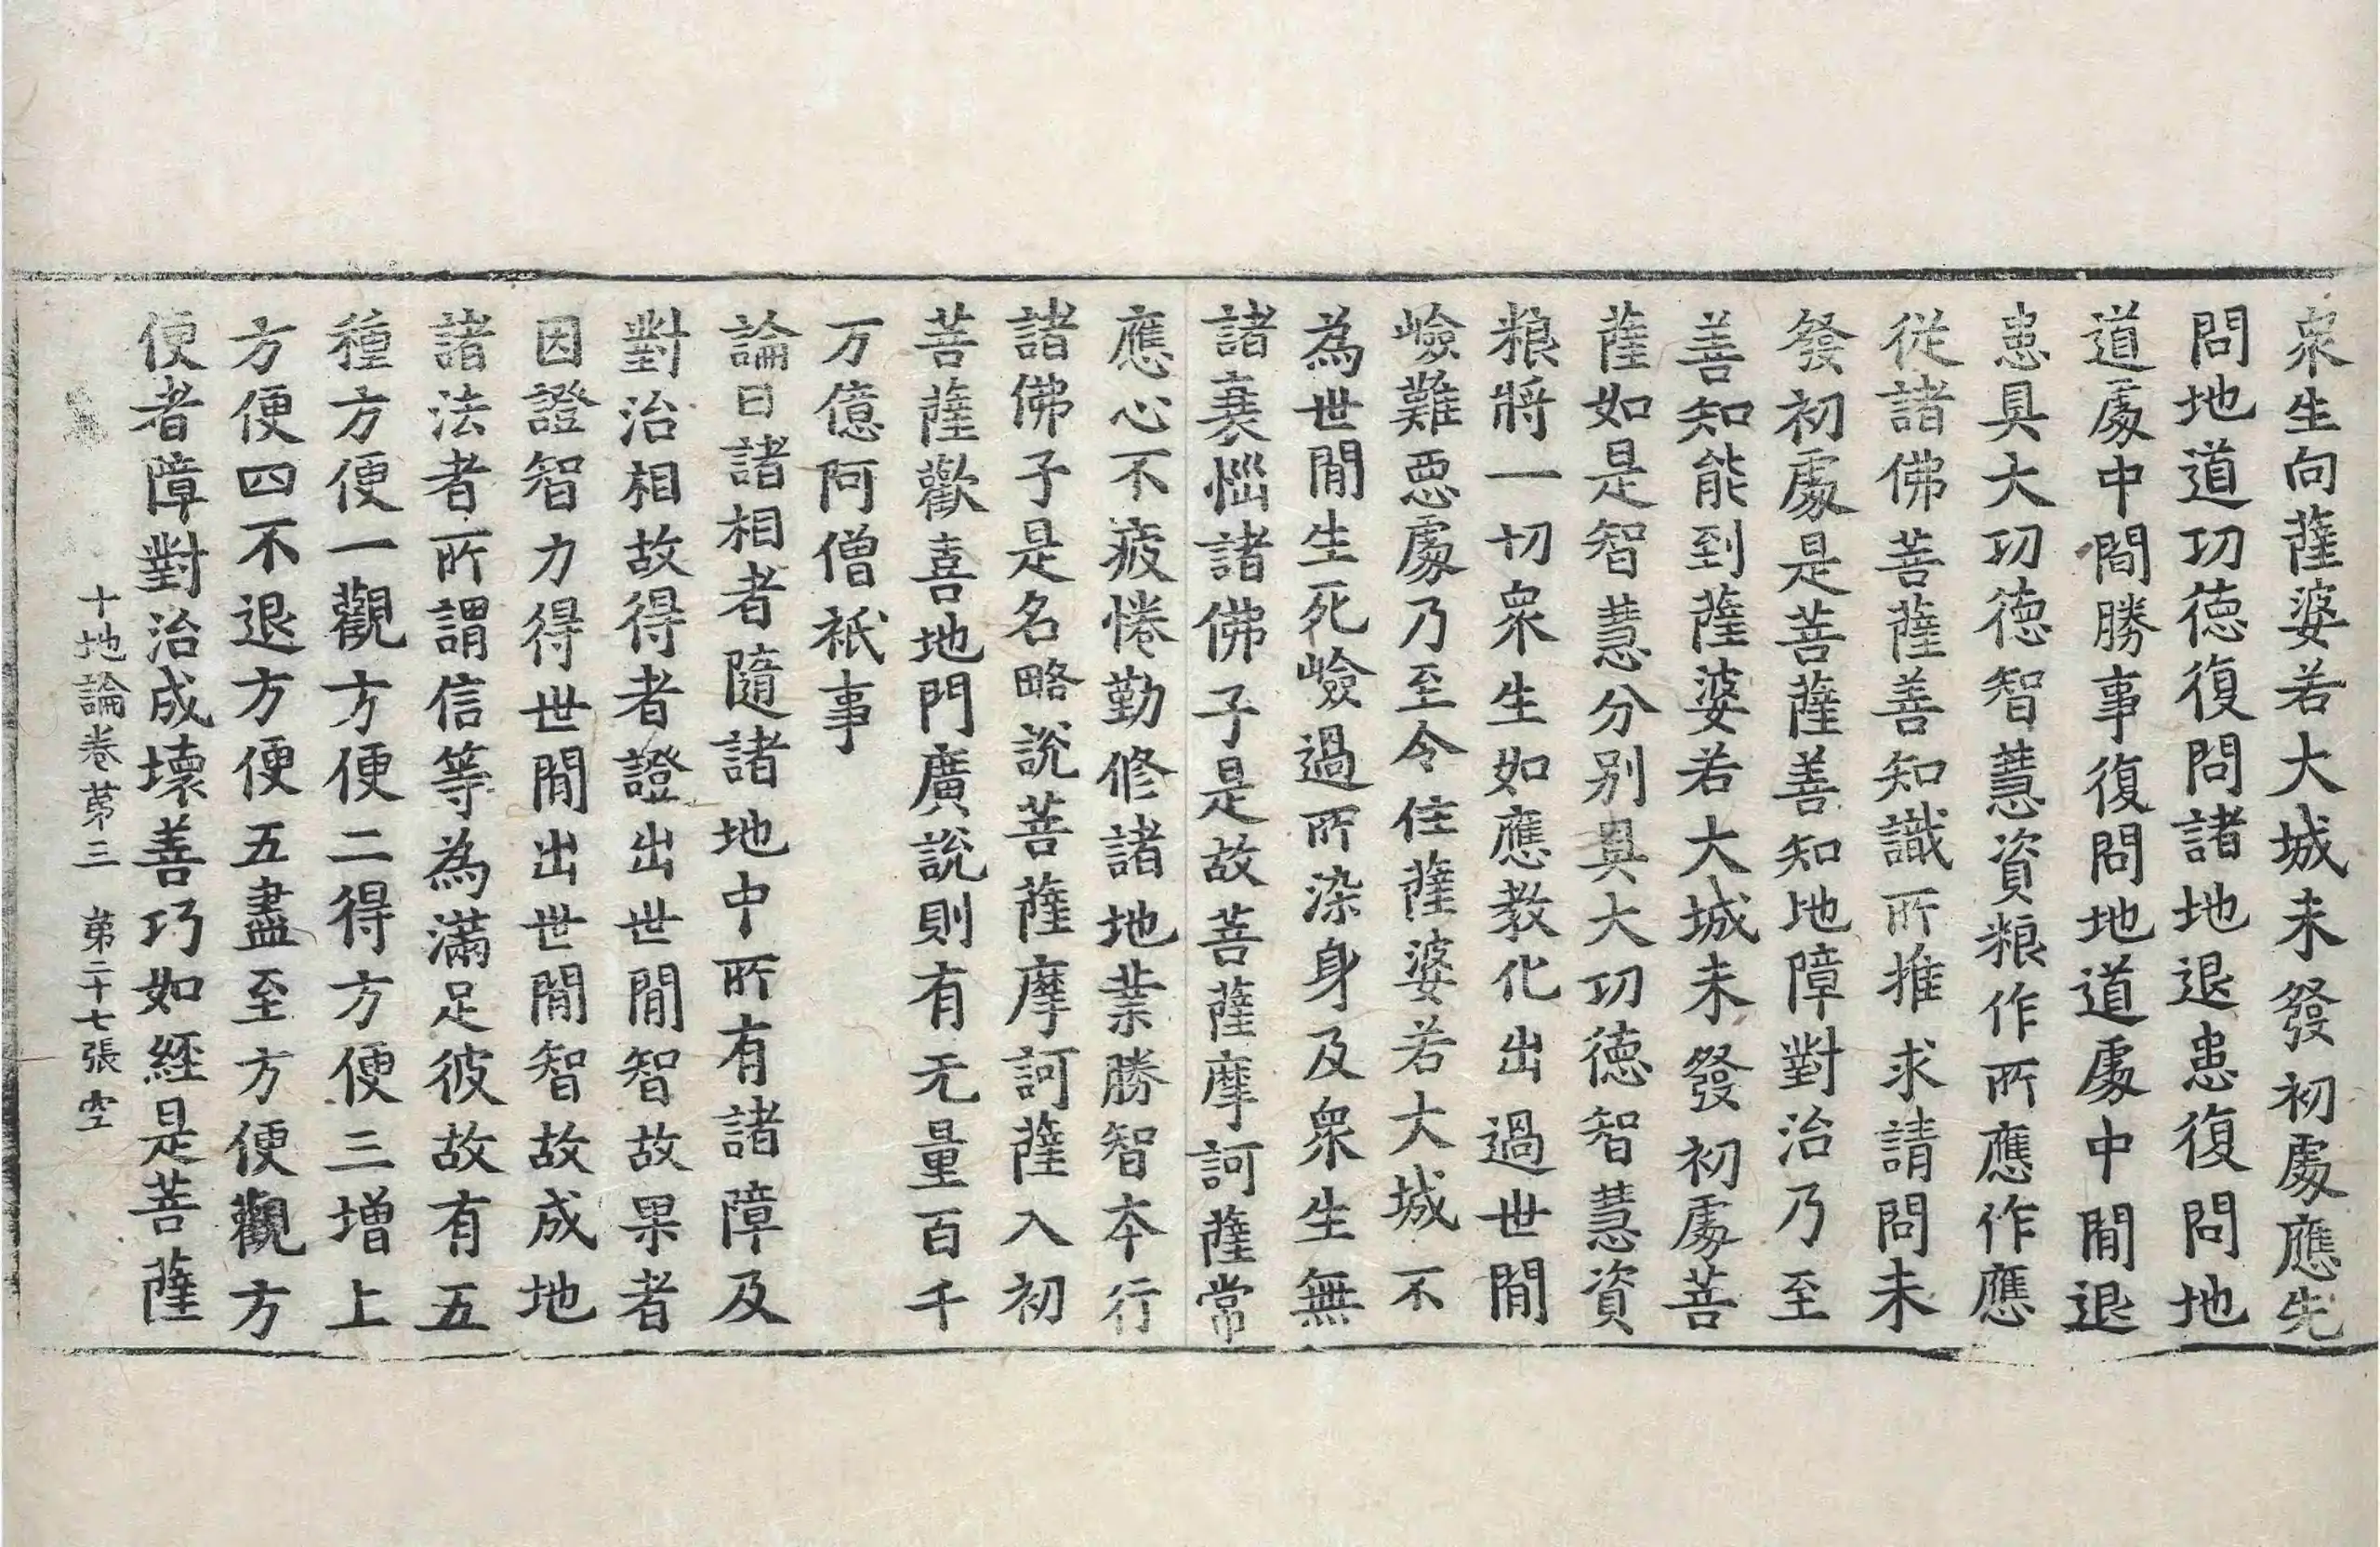 衆生向薩婆若大城未發初處應先
問地道功德復問諸地退患復問地
道處中間勝事復問地道處中間退
患具大功德智慧資粮作所應作應
從諸佛菩薩善知識所推求請問未
發初處是菩薩善知地障對治乃至
善知能到薩婆若大城未發初處菩
薩如是智慧分別具大功德智慧資
粮將一切衆生如應教化出過世間
嶮難惡處乃至令住薩婆若大城不
為世間生死嶮過所染身及衆生無
諸衰惱諸佛子是故菩薩摩訶薩常
應心不疲惓勤修諸地業勝智本行
諸佛子是名略說菩薩摩訶薩入初
菩薩歡喜地門廣說則有无量百千
万億阿僧祇事
論曰諸相者隨諸地中所有諸障及
對治相故得者證出世間智故果者
因證智力得世間出世間智故成地
諸法者所謂信等為滿足彼故有五
種方便一觀方便二得方便三增上
方便四不退方便五盡至方便觀方
便者障對治成壞善巧如經是菩薩
十地論卷苐三 苐二十七張 空